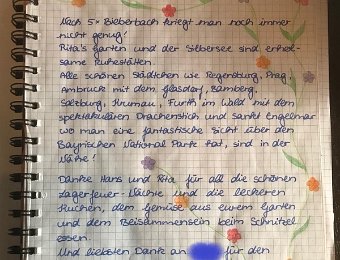 Nach 5x Bieberbach kriegt man noch immer
nicht genug!
Rita's Garten und der Silbersee sind erhol-
same Ruhestätten.
Alle schönen Städtchen wie Regensburg, Prag,
Ambruck mit dem Glasdorf, Bamberg,
Salzburg, Krumau, Furth im Wald mit dem
spektakulären Drachenstich und Sankt Engelmar
wo man eine fantastische Sicht über den
Bayrischen National Park hat, sind in der
Nähe!
Danke Hans und Rita für all die schönen
Lagerfeuer-Nächte und die leckeren
Kuchen, dem Gemüse aus eurem Garten
und dem Beisammensein beim Schnitzel
essen.
Und liebsten Dank an für den